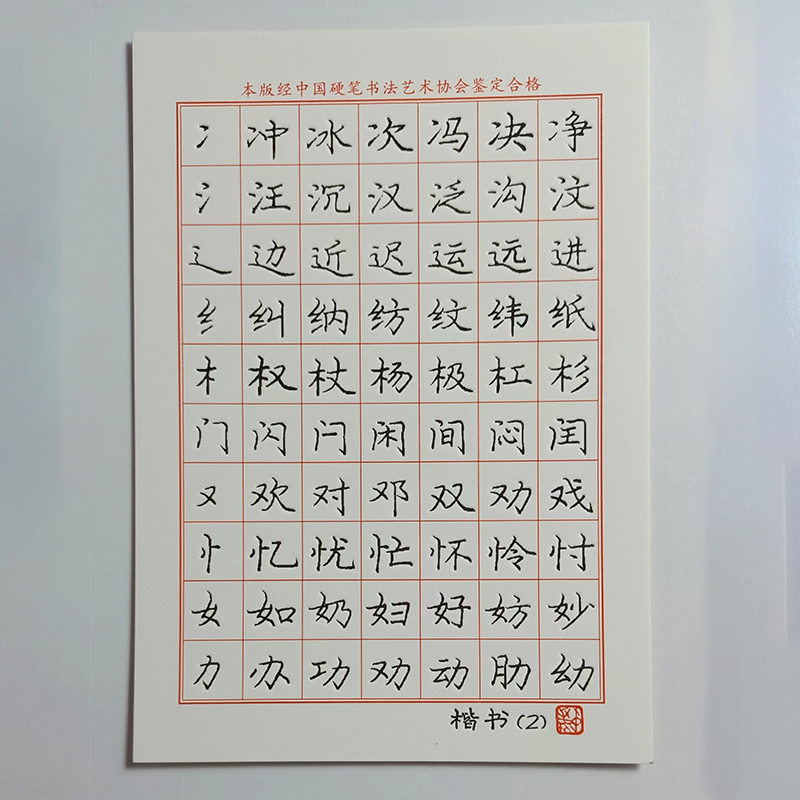 本版经中国硬笔书法艺术协会鉴定合格
冫 冲 冰 次 冯 决 净
氵 汪 沉 汉 泛 沟 汶
辶 边 近 迟 运 远 进
纟 纠 纳 纺 纹 纬 纸
木 权 杖 杨 极 杠 杉
门 闪 闩 闲 间 闷 闰
又 欢 对 邓 双 劝 戏
忄 忆 忧 忙 怀 怜 忖
女 如 奶 妇 好 妨 妙
力 办 功 劝 动 肋 幼
楷书(2)